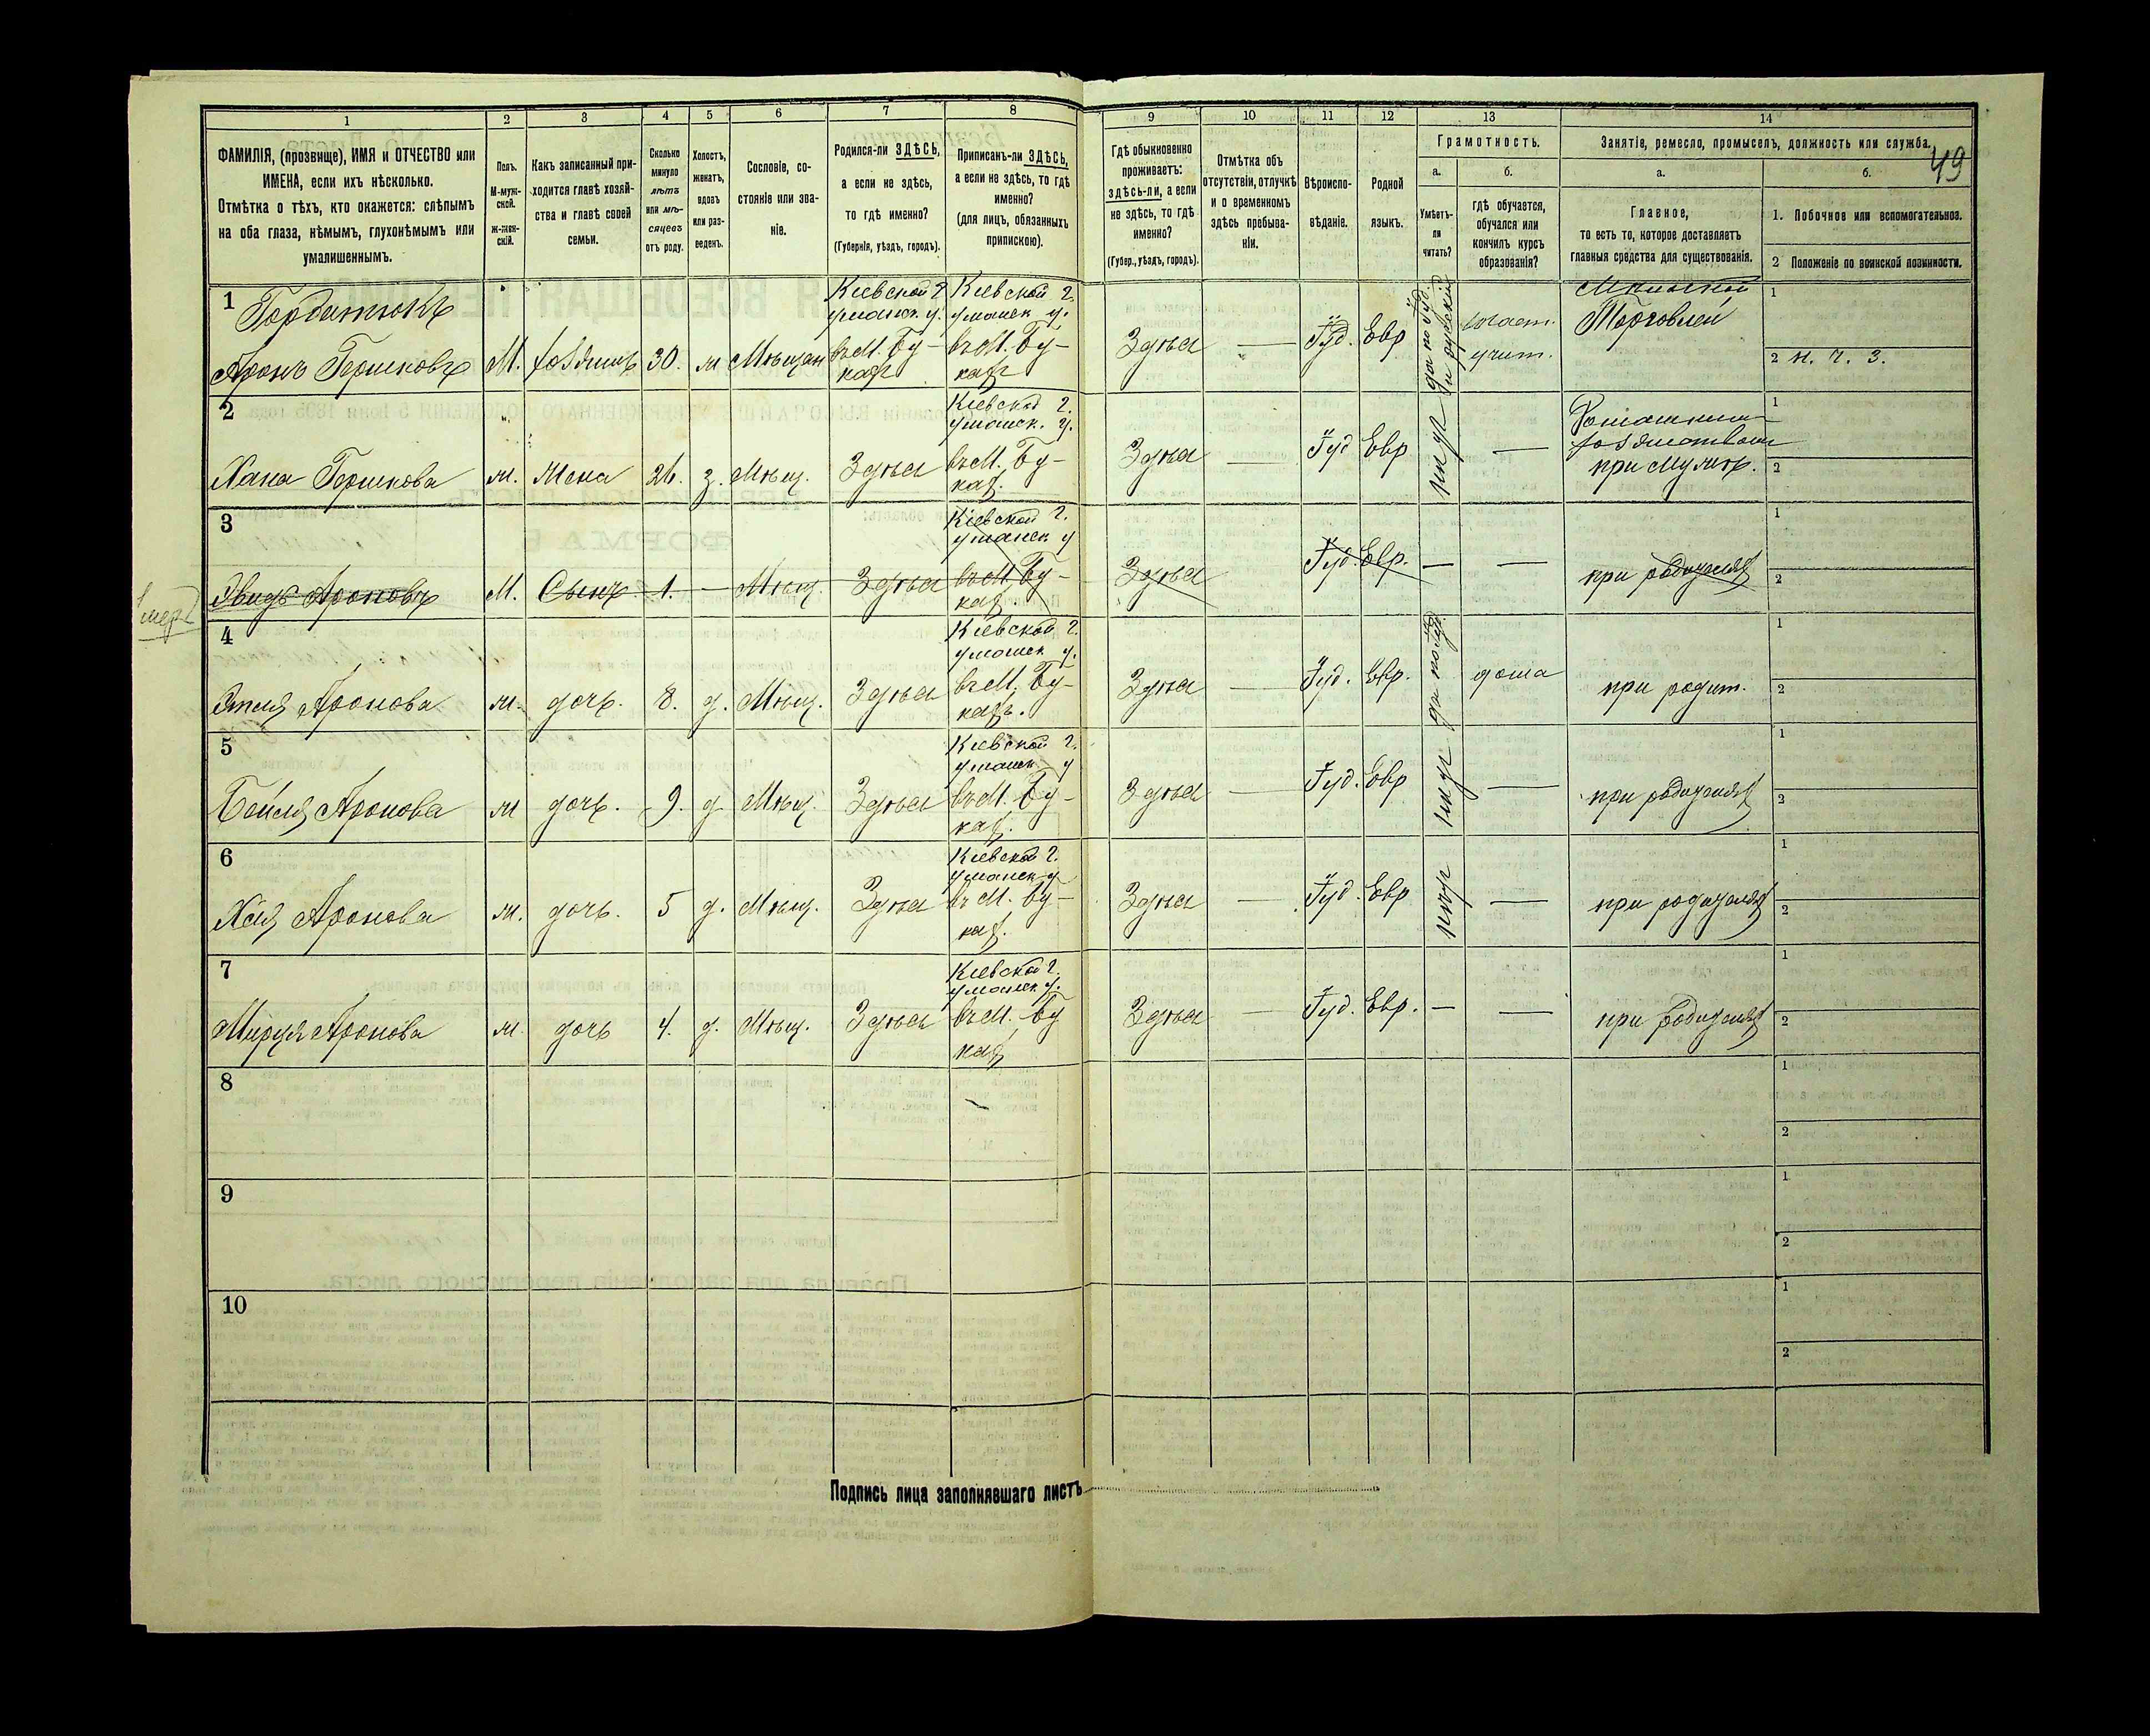 1 2 3 4 5 6 7 8 9 10 11 12 13 14
49
ФАМИЛІЯ, (прозвище), ИМЯ и ОТЧЕСТВО или
ИМЕНА, если ихъ нѣсколько.
Отмѣтка о тѣхъ, кто окажется: слѣпымъ
на оба глаза, нѣмымъ, глухонѣмымъ или
умалишеннымъ.
Полъ.
М-муж-
ской.
ж-жен-
скій.
Какъ записанный при-
ходится главѣ хозяй-
ства и главѣ своей
семьи.
Сколько
минуло
лѣтъ
или мѣ-
сяцевъ
отъ роду.
Холостъ,
женатъ,
вдовъ
или раз-
веденъ.
Сословіе, со-
стояніе или зва-
ніе.
Родился-ли ЗДѢСЬ,
а если не здѣсь,
то гдѣ именно?
(Губернія, уѣздъ, городъ).
Приписанъ-ли ЗДѢСЬ,
а если не здѣсь, то гдѣ
именно?
(для лицъ, обязанныхъ
припискою).
Гдѣ обыкновенно
проживаетъ:
здѣсь-ли, а если
не здѣсь, то гдѣ
именно?
(Губер., уѣздъ, городъ).
Отмѣтка объ
отсутствіи, отлучкѣ
и о временномъ
здѣсь пребыва-
ніи.
Вѣроиспо-
вѣданіе.
Родной
языкъ.
Грамотность.
а.
Умѣетъ-
ли
читать?
б.
гдѣ обучается,
обучался или
кончилъ курсъ
образованія?
Занятіе, ремесло, промыселъ, должность или служба.
а.
Главное,
то есть то, которое доставляетъ
главныя средства для существованія.
б.
1. Побочное или вспомогательное.
2 Положеніе по воинской повинности.
1
Аронъ Гершковъ М. хозяинъ 30. м Мѣщан
Кіевской г.
уманск. у.
въ М. Бу-
кахъ
Кіевской г.
уманск у.
въ М. Бу-
кахъ
Здѣсь — Іуд. Евр да по Іуд.
и русскій
учит.
Торговлей
1
2 н. ч. з.
2
Хана Гершкова ж. Жена 26. з. Мѣщ. Здѣсь
Кіевской г.
уманск. у.
въ М. Бу-
кахъ.
Здѣсь — Іуд Евр —
Домашним
хозяйством
при мужѣ.
1
2
3
Ароновъ М. Сынъ 1. — Мѣщ. Здѣсь
Кіевской г.
уманск у
въ М Бу-
кахъ
Здѣсь Іуд. Евр. — — при родителяхъ
1
2
умеръ
4
Этля Аронова ж. дочь. 8. д. Мѣщ. Здѣсь
Кіевской г.
уманск у.
въ М. Бу-
кахъ.
Здѣсь — Іуд. Евр. да по Іуд. дома при родит.
1
2
5
Бейля Аронова ж дочь. 9. д Мѣщ. Здѣсь
Кіевской г.
уманск. у
въ М. Бу-
кахъ.
Здѣсь — Іуд. Евр — при родителяхъ
1
2
6
Хая Аронова ж. дочь. 5 д. Мѣщ. Здѣсь
Кіевской г.
уманск у
въ М. Бу-
кахъ.
Здѣсь — Іуд. Евр — при родителяхъ
1
2
7
Аронова ж. дочь 4. д. Мѣщ. Здѣсь
Кіевской г.
уманск у.
въ М. Бу
кахъ
Здѣсь — Іуд. Евр. — — при родителяхъ
1
2
8
1
2
9
1
2
10
1
2
Подпись лица заполнявшаго листъ